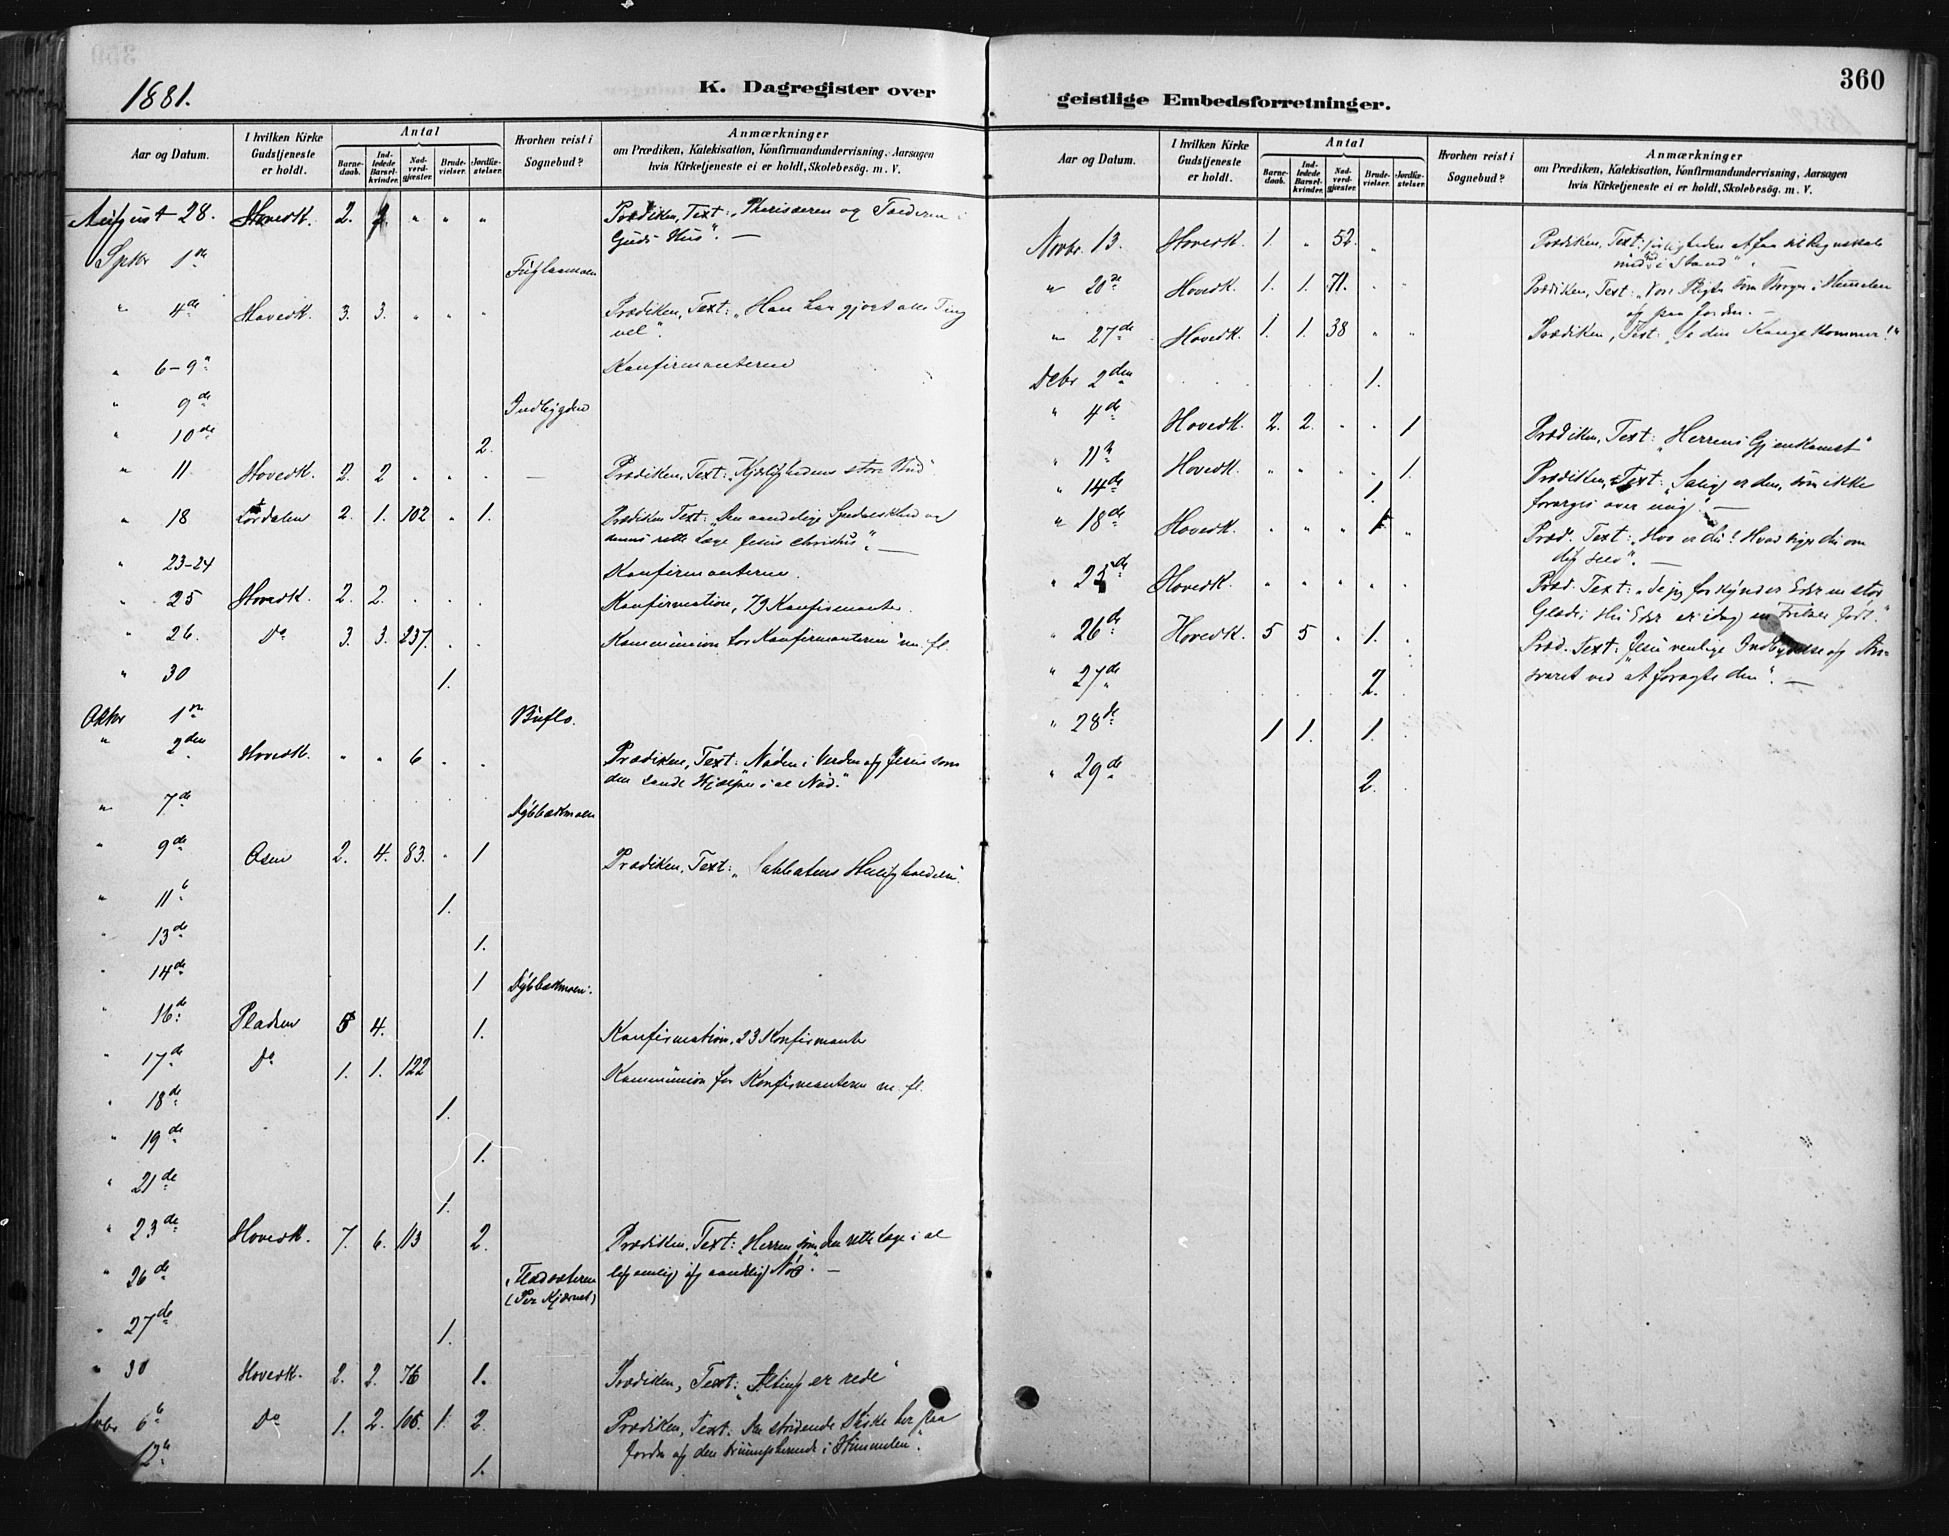 360
1881.
K. Dagregister over
geistlige Embedsforretninger.
Aar og Datum.
I hvilken Kirke Gudstjeneste er holdt.
Antal
Barne-daab.
Ind-ledede Barsel-kvinder.
Nad-verd-gjæster.
Brude-vielser.
Jordfæ-stelser.
Hvorhen reist i Sognebud?
Anmærkninger
om Prædiken, Katekisation, Konfirmandundervisning, Aarsagen
hvis Kirketjeneste ei er holdt, Skolebesög. m. V.
August 28. Hovedk. 2. " " " Prædiken, Text: "Pharisæeren og Tolderen i
Guds Hus". —
Septbr 1ste
" 4de Hovedk. 3. 3. " " " Prædiken, Text: "Han har gjort alle Ting
vel".
" 6-9 Konfirmanterne
" 9de Indbygden
" 10de 2.
" 11 Hovedk. 2. 2 " " " — Prædiken, Text: "Kjærlighedens store Bud
" 18 Lørdalen 2. 1. 102 " 1. Prædiken Text: "Den aandelige Spedalskhed og
dennes rette Læge Jesus Christus". —
" 23-24 Konfirmanterne.
" 25 Hovedk. 2. 2. " " " Konfirmation, 79 Konfirmanter.
" 26. Do 3. 3. 237. " " Kommunion for Konfirmanterne m. fl.
" 30 1.
Oktbr 1ste Buflo.
" 2den Hovedk. " " 6 " " Prædiken, Text: Nøden i Verden og Jesus som
den sande Hjælper i al Nød."
" 7de Dybbækmoen
" 9de Osen 2. 4. 83. " 1 Prædiken, Text: "Sabbatens Helligholdelse.
" 11te 1.
" 13de 1.
" 14de 1 Dybbækmoen.
" 16de Pladsen 5 4. 1. Konfirmation, 23 Konfirmanter
" 17de Do 1. 1. 122 Kommunion for Konfirmanterne m. fl.
" 18de 1.
" 19de 1.
" 21de 1.
" 23de Hovedk. 7. 6. 113 2. Prædiken, Text: "Herren som den rette Læge i al
legemlig og aandelig Nød". —
" 26de Fladsæteren
(Per Kjærnet)
" 27de 1.
" 30 Hovedk. 2. 2. 76 1. Prædiken, Text: "Alting er rede"
Novbr 6te Do 1. 2. 105. 1. 2. Prædiken, Text: Den stridende Kirke her paa
Jorden og den triumpherende i Himmelen".
12te 1.
Aar og Datum.
I hvilken Kirke Gudstjeneste er holdt.
Antal
Barne-daab.
Ind-ledede Barsel-kvinder.
Nad-verd-gjæster.
Brude-vielser.
Jordfæ-stelser.
Hvorhen reist i Sognebud?
Anmærkninger
om Prædiken, Katekisation, Konfirmandundervisning, Aarsagen
hvis Kirketjeneste ei er holdt, Skolebesög. m. V.
Novbr. 13. Hovedk. 1. " 52. " Prædiken, Text:
" 20de Hovedk. 1. 1. 71. " " Prædiken, Text: "Vore Pligter som Borger i Himmelen
og paa Jorden. —
" 27de Hovedk. 1. 1. 38 " " Prædiken, Text: "Se din Konge kommer!"
Debr 2den 1.
" 4de Hovedk. 2. 2. " " 1 Prædiken, Text: "Herrens Gjenkomst"
" 11te Hovedk. " " " " 1. Prædiken, Text: "Salig er den, som ikke
forarges over mig". —
" 14de 1.
" 18de Hovedk. " " " " Præd. Text: "Hvo er du? Hvad siger du om
dig selv". —
" 25de Hovedk. " " " " " Præd. Text: "Se jeg forkynder Eder en stor
Glæde, thi Eder er idag en Frelser født."
" 26de Hovedk. 5 5 " 1. " Præd. Text: "Jesu venlige Indbydelse og An-
svaret ved at foragte den". —
" 27de 2.
" 28de 1 1. 1.
" 29de 2.